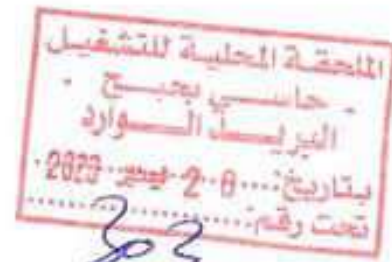 الملحقة المحلية للتشغيل
- حاسي بحبح -
البريد الوارد
بتاريخ: 2 0 2023
تحت رقم: